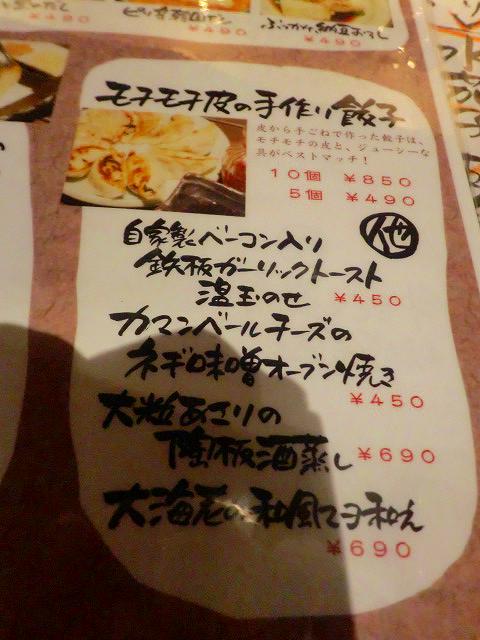 ¥490
¥490
ぶっかけ納豆おろし
¥490
モチモチ皮の手作り餃子
皮から手ごねで作った餃子は、
モチモチの皮と、ジューシーな
具がベストマッチ！
10個 ¥850
5個 ¥490
他
自家製ベーコン入り
鉄板ガーリックトースト
温玉のせ ¥450
カマンベールチーズの
ネギ味噌オーブン焼き
¥450
大粒あさりの
陶板酒蒸し ¥690
大海老の和風マヨ和え
¥690